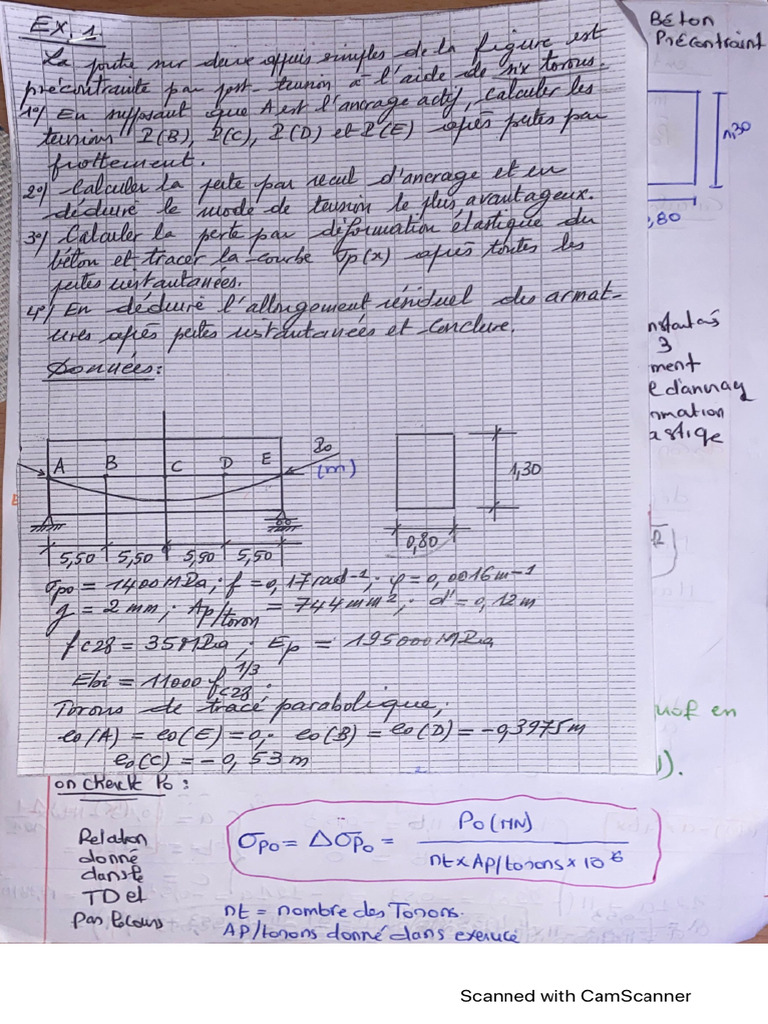 Ex. 1
Béton
Précontraint
La poutre sur deux appuis simples de la figure est
précontrainte par post-tension à l'aide de six torons.
1°/ En supposant que A est l'ancrage actif, calculer les
tensions P(B), P(C), P(D) et P(E) après pertes par
frottement.
2°/ Calculer la perte par recul d'ancrage et en
déduire le mode de tension le plus avantageux.
3°/ Calculer la perte par déformation élastique du
béton et tracer la courbe σp(x) après toutes les
pertes instantanées.
4°/ En déduire l'allongement résiduel des armat-
ures après pertes instantanées et conclure.
Données:
1,30
,80
3
ment
A B C D E
(m)
1,30
0,80
5,50 5,50 5,50 5,50
σpo = 1400 MPa ; f = 0,17 rad-1 ; φ = 0,0016 m-1
g = 2 mm ; Ap/toron = 744 mm² ; d' = 0,12 m
fc28 = 35 MPa ; Ep = 195000 MPa
Ebi = 11000 fc28 1/3 .
Torons de tracé parabolique ;
eo(A) = eo(E) = 0 ; eo(B) = eo(D) = -0,3975 m
eo(C) = -0,53 m
en
on cherche Po :
Relation
donné
dans le
TD et
pas le cours
σpo = Δσpo = Po (MN) / nt x Ap/torons x 10-6
nt = nombre des Torons.
AP/torons donné dans exercice
Scanned with CamScanner